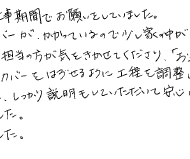 車期間でお願いをしていました。
バーが、かかっているので少し家の中が
担当の方が気をきかせてくださり、「お
カバーをはずせるように工程を調整し
、しっかり説明もしていただいて安心
した。
した。